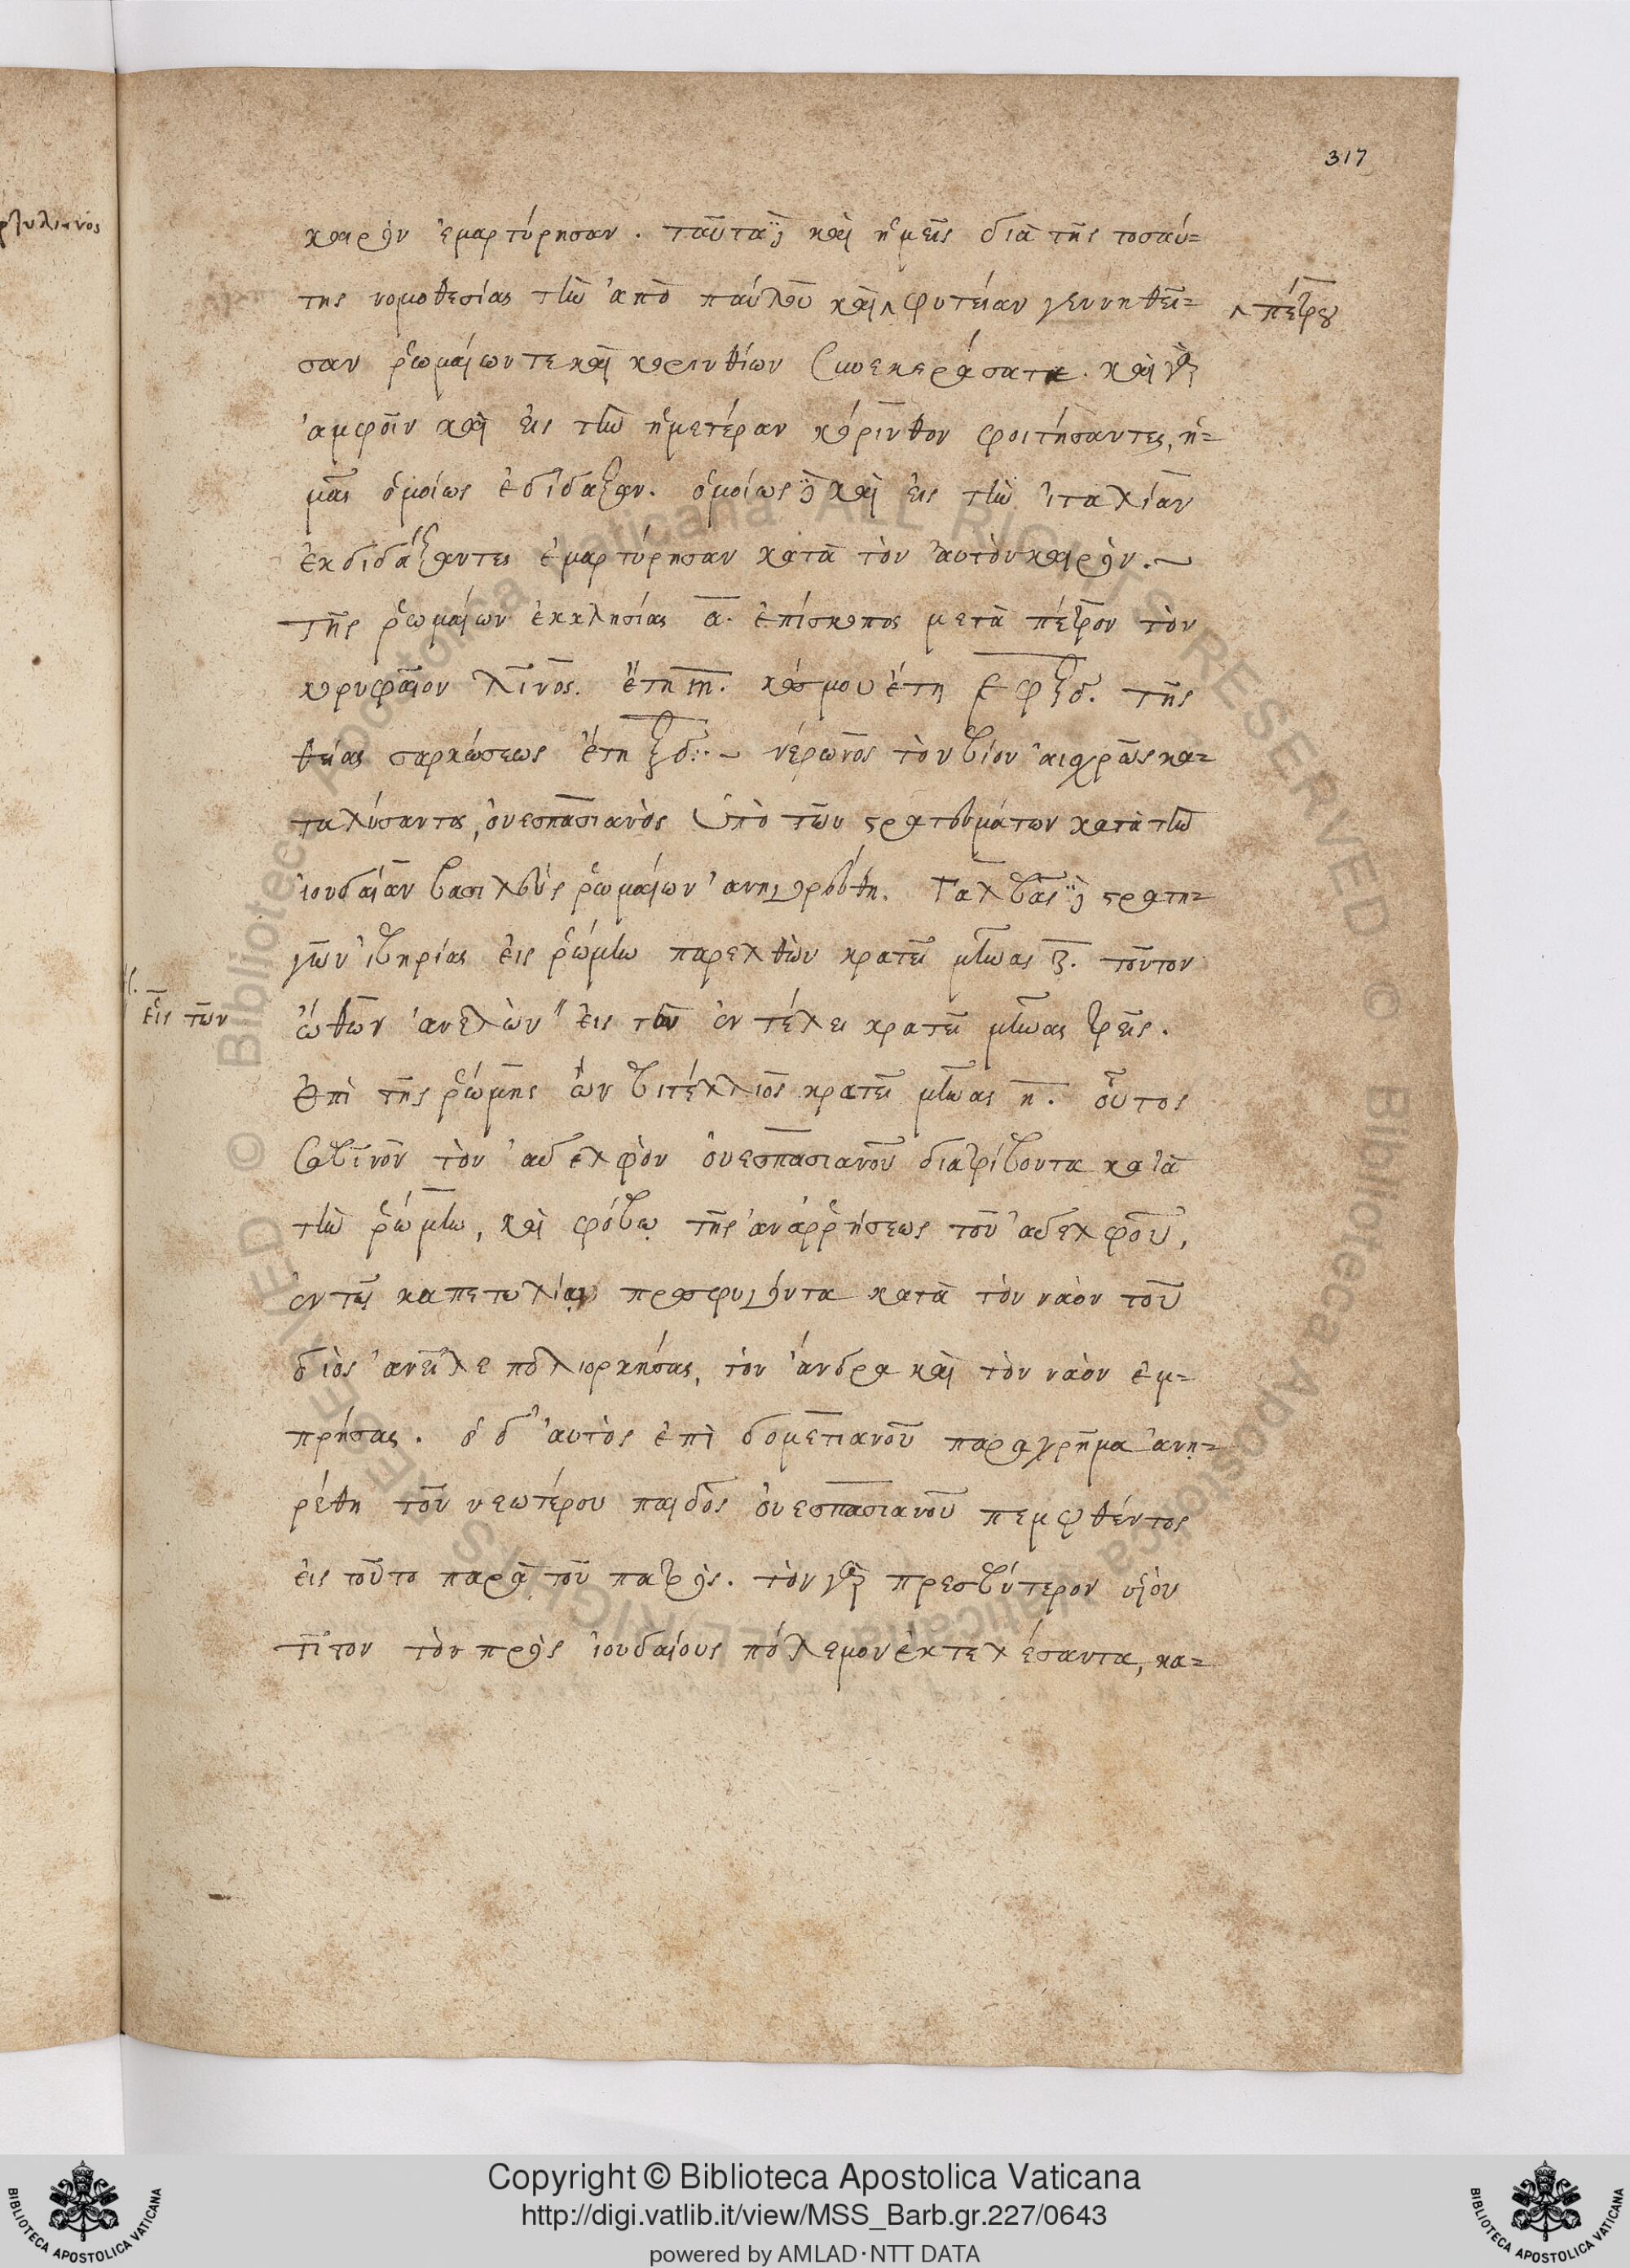 317
ρτυλιανός
καιρὸν ἐμαρτύρησαν. ταῦτα δὲ καὶ ἡμεῖς διὰ τῆς τοσαύ=
της νομοθεσίας τὴν ἀπὸ παύλου καὶ ˄ φυτείαν γεννηθεῖ=
˄ πέτρου
σαν ῥωμαίων τε καὶ κορινθίων συνεκεράσατε. καὶ γὰρ
ἀμφοῖν καὶ εἰς τὴν ἡμετέραν κόρινθον φοιτήσαντες, ἡ=
μᾶς ὁμοίως ἐδίδαξαν. ὁμοίως δὲ καὶ εἰς τὴν ἰταλίαν
ἐκδιδάξαντες ἐμαρτύρησαν κατὰ τὸν αὐτὸν καιρὸν.
τῆς ῥωμαίων ἐκκλησίας α. ἐπίσκοπος μετὰ πέτρον τὸν
κορυφαῖον λῖνος. ἔτη ιη. κόσμου ἔτη ͵εφξδ. τῆς
θείας σαρκώσεως ἔτη ξδ. νέρωνος τὸν βίον αἰσχρῶς κα=
ταλύσαντος, οὐεσπασιανὸς ὑπὸ τῶν στρατευμάτων κατὰ τὴν
ἰουδαίαν βασιλεὺς ῥωμαίων ἀνηγορεύθη. Γαλβᾶς δὲ στρατη=
γῶν ἰβηρίας εἰς ῥώμην παρελθὼν κρατεῖ μῆνας ζ. τοῦτον
ὤθων ἀνελὼν " εἰς τῶν ἐν τέλει κρατεῖ μῆνας τρεῖς.
εἷς τῶν
ἐπὶ τῆς ῥώμης ὢν βιτέλλιος κρατεῖ μῆνας η. οὗτος
σαβῖνον τὸν ἀδελφὸν οὐεσπασιανοῦ διατρίβοντα κατὰ
τὴν ῥώμην, καὶ φόβῳ τῆς ἀναρρήσεως τοῦ ἀδελφοῦ,
ἐν τῷ καπετωλίῳ προσφυγόντα κατὰ τὸν ναὸν τοῦ
διὸς ἀνεῖλε πολιορκήσας, τὸν ἄνδρα καὶ τὸν ναὸν ἐμ=
πρήσας. ὁ δ' αὐτὸς ἐπὶ δομετιανοῦ παραχρῆμα ἀνῃ=
ρέθη τοῦ νεωτέρου παιδὸς οὐεσπασιανοῦ πεμφθέντος
εἰς τοῦτο παρὰ τοῦ πατρὸς. τὸν γὰρ πρεσβύτερον υἱὸν
τῖτον τὸν πρὸς ἰουδαίους πόλεμον ἐκτελέσαντα, κα=
Copyright © Biblioteca Apostolica Vaticana
http://digi.vatlib.it/view/MSS_Barb.gr.227/0643
powered by AMLAD·NTT DATA
BIBLIOTECA APOSTOLICA VATICANA
BIBLIOTECA APOSTOLICA VATICANA